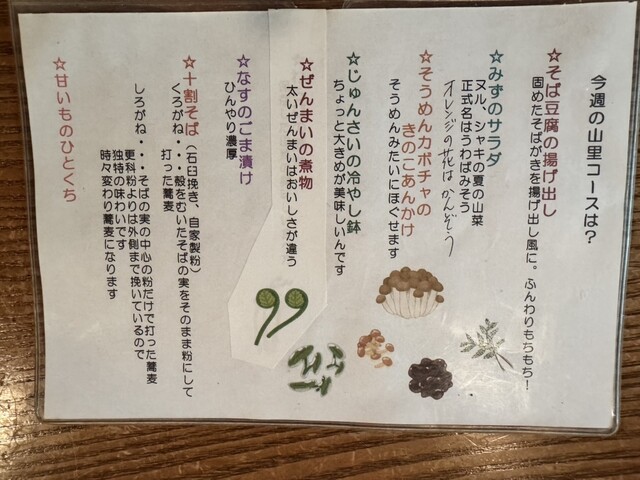 今週の山里コースは?
☆そば豆腐の揚げ出し
固めたそばがきを揚げ出し風に。ふんわりもちもち!
☆みずのサラダ
ヌル、シャキの夏の山菜
正式名はうわばみそう
オレンジの花はかんぞう
☆そうめんカボチャの
きのこあんかけ
そうめんみたいにほぐせます
☆じゅんさいの冷やし鉢
ちょっと大きめが美味しいんです
☆ぜんまいの煮物
太いぜんまいはおいしさが違う
☆なすのごま漬け
ひんやり濃厚
☆十割そば(石臼挽き、自家製粉)
くろがね・・・殻をむいたそばの実をそのまま粉にして
打った蕎麦
しろがね・・・そばの実の中心の粉だけで打った蕎麦
更科粉よりは外側まで挽いているので
独特の味わいです
時々変わり蕎麦になります
☆甘いものひとくち